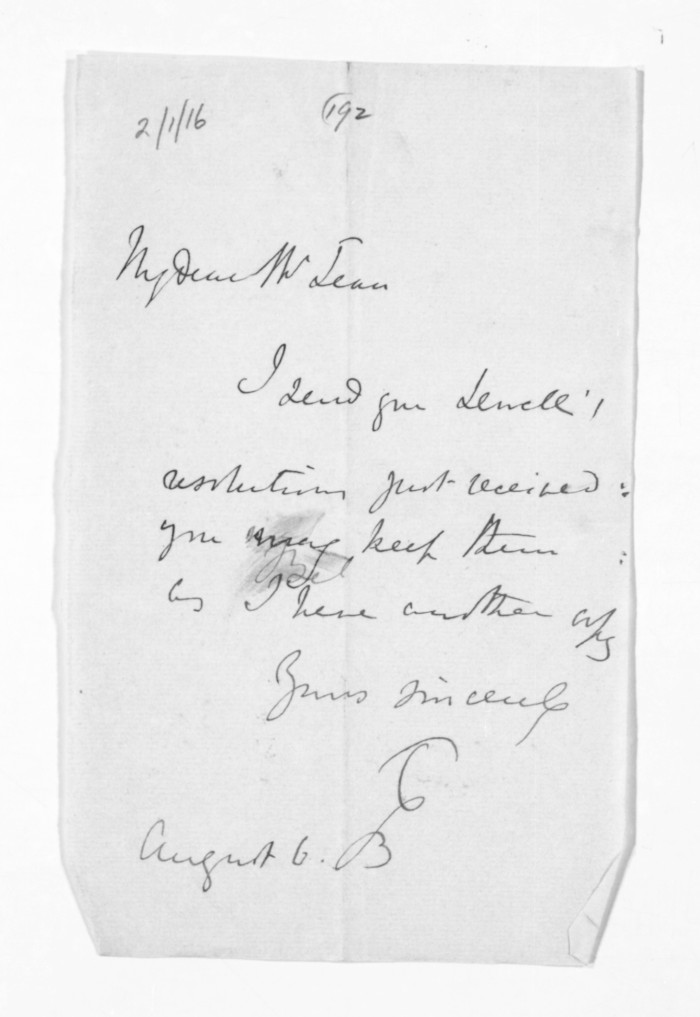 2/1/16
192
My dear Mr Lean
I send you Sewell's
resolutions just received :
you may keep them :
as I have another copy
Yours sincerely
August 6. B